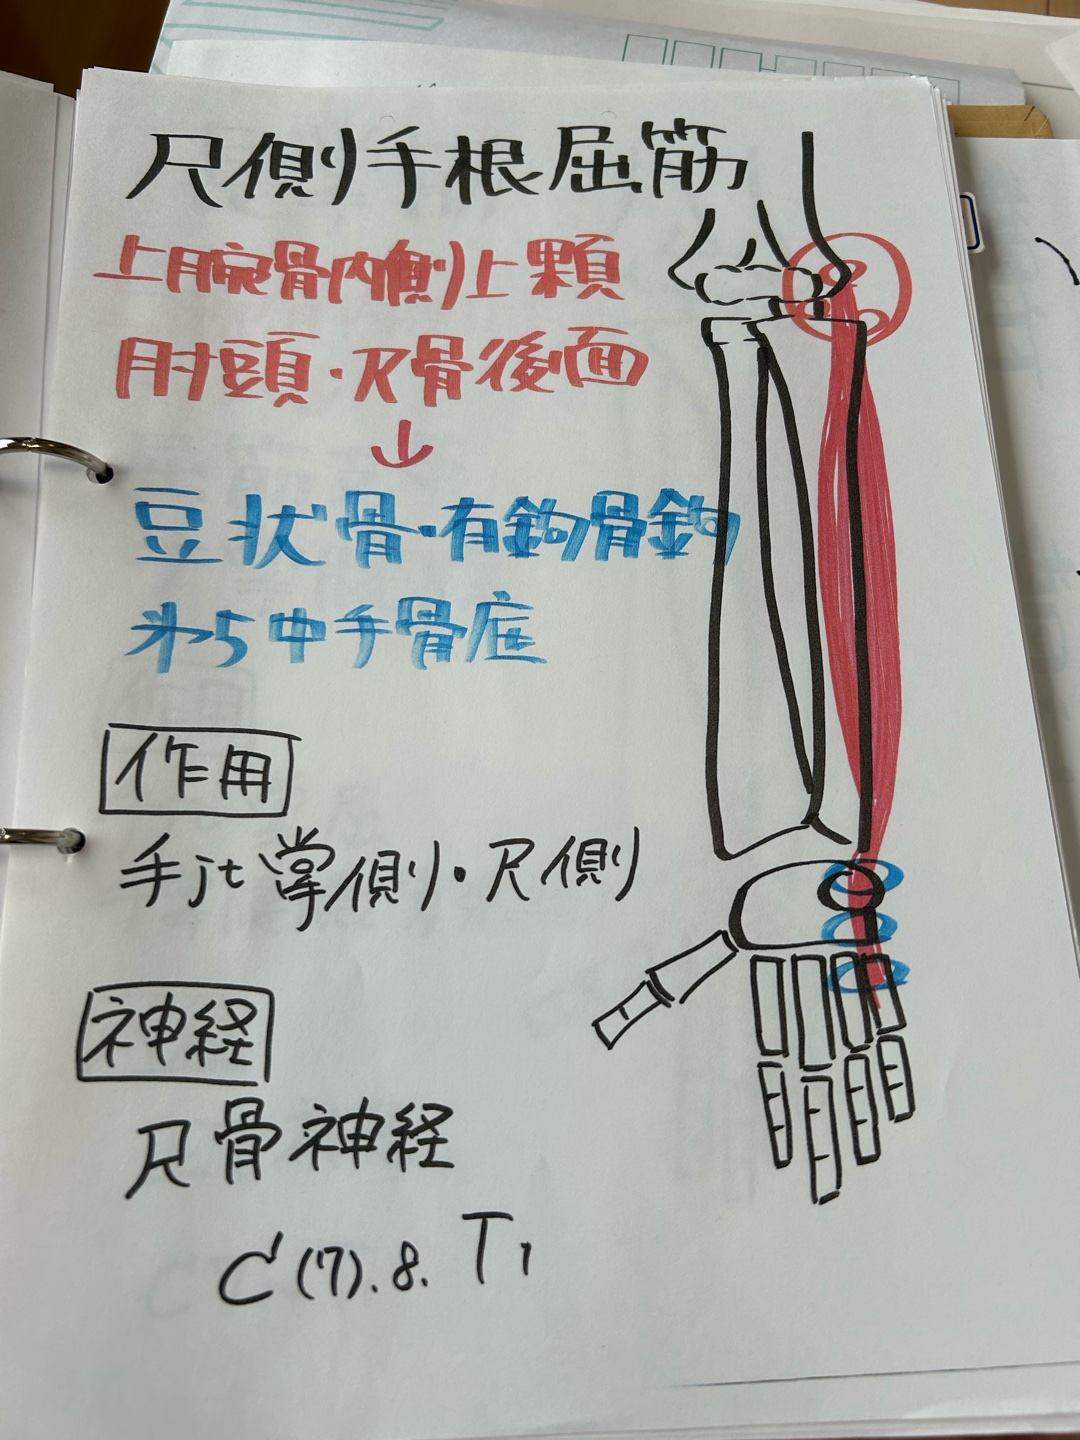 尺側手根屈筋
上腕骨内側上顆
肘頭・尺骨後面
↓
豆状骨・有鈎骨鈎
中手骨底
作用
手jt掌側・尺側
神経
尺骨神経
C(7).8.T1